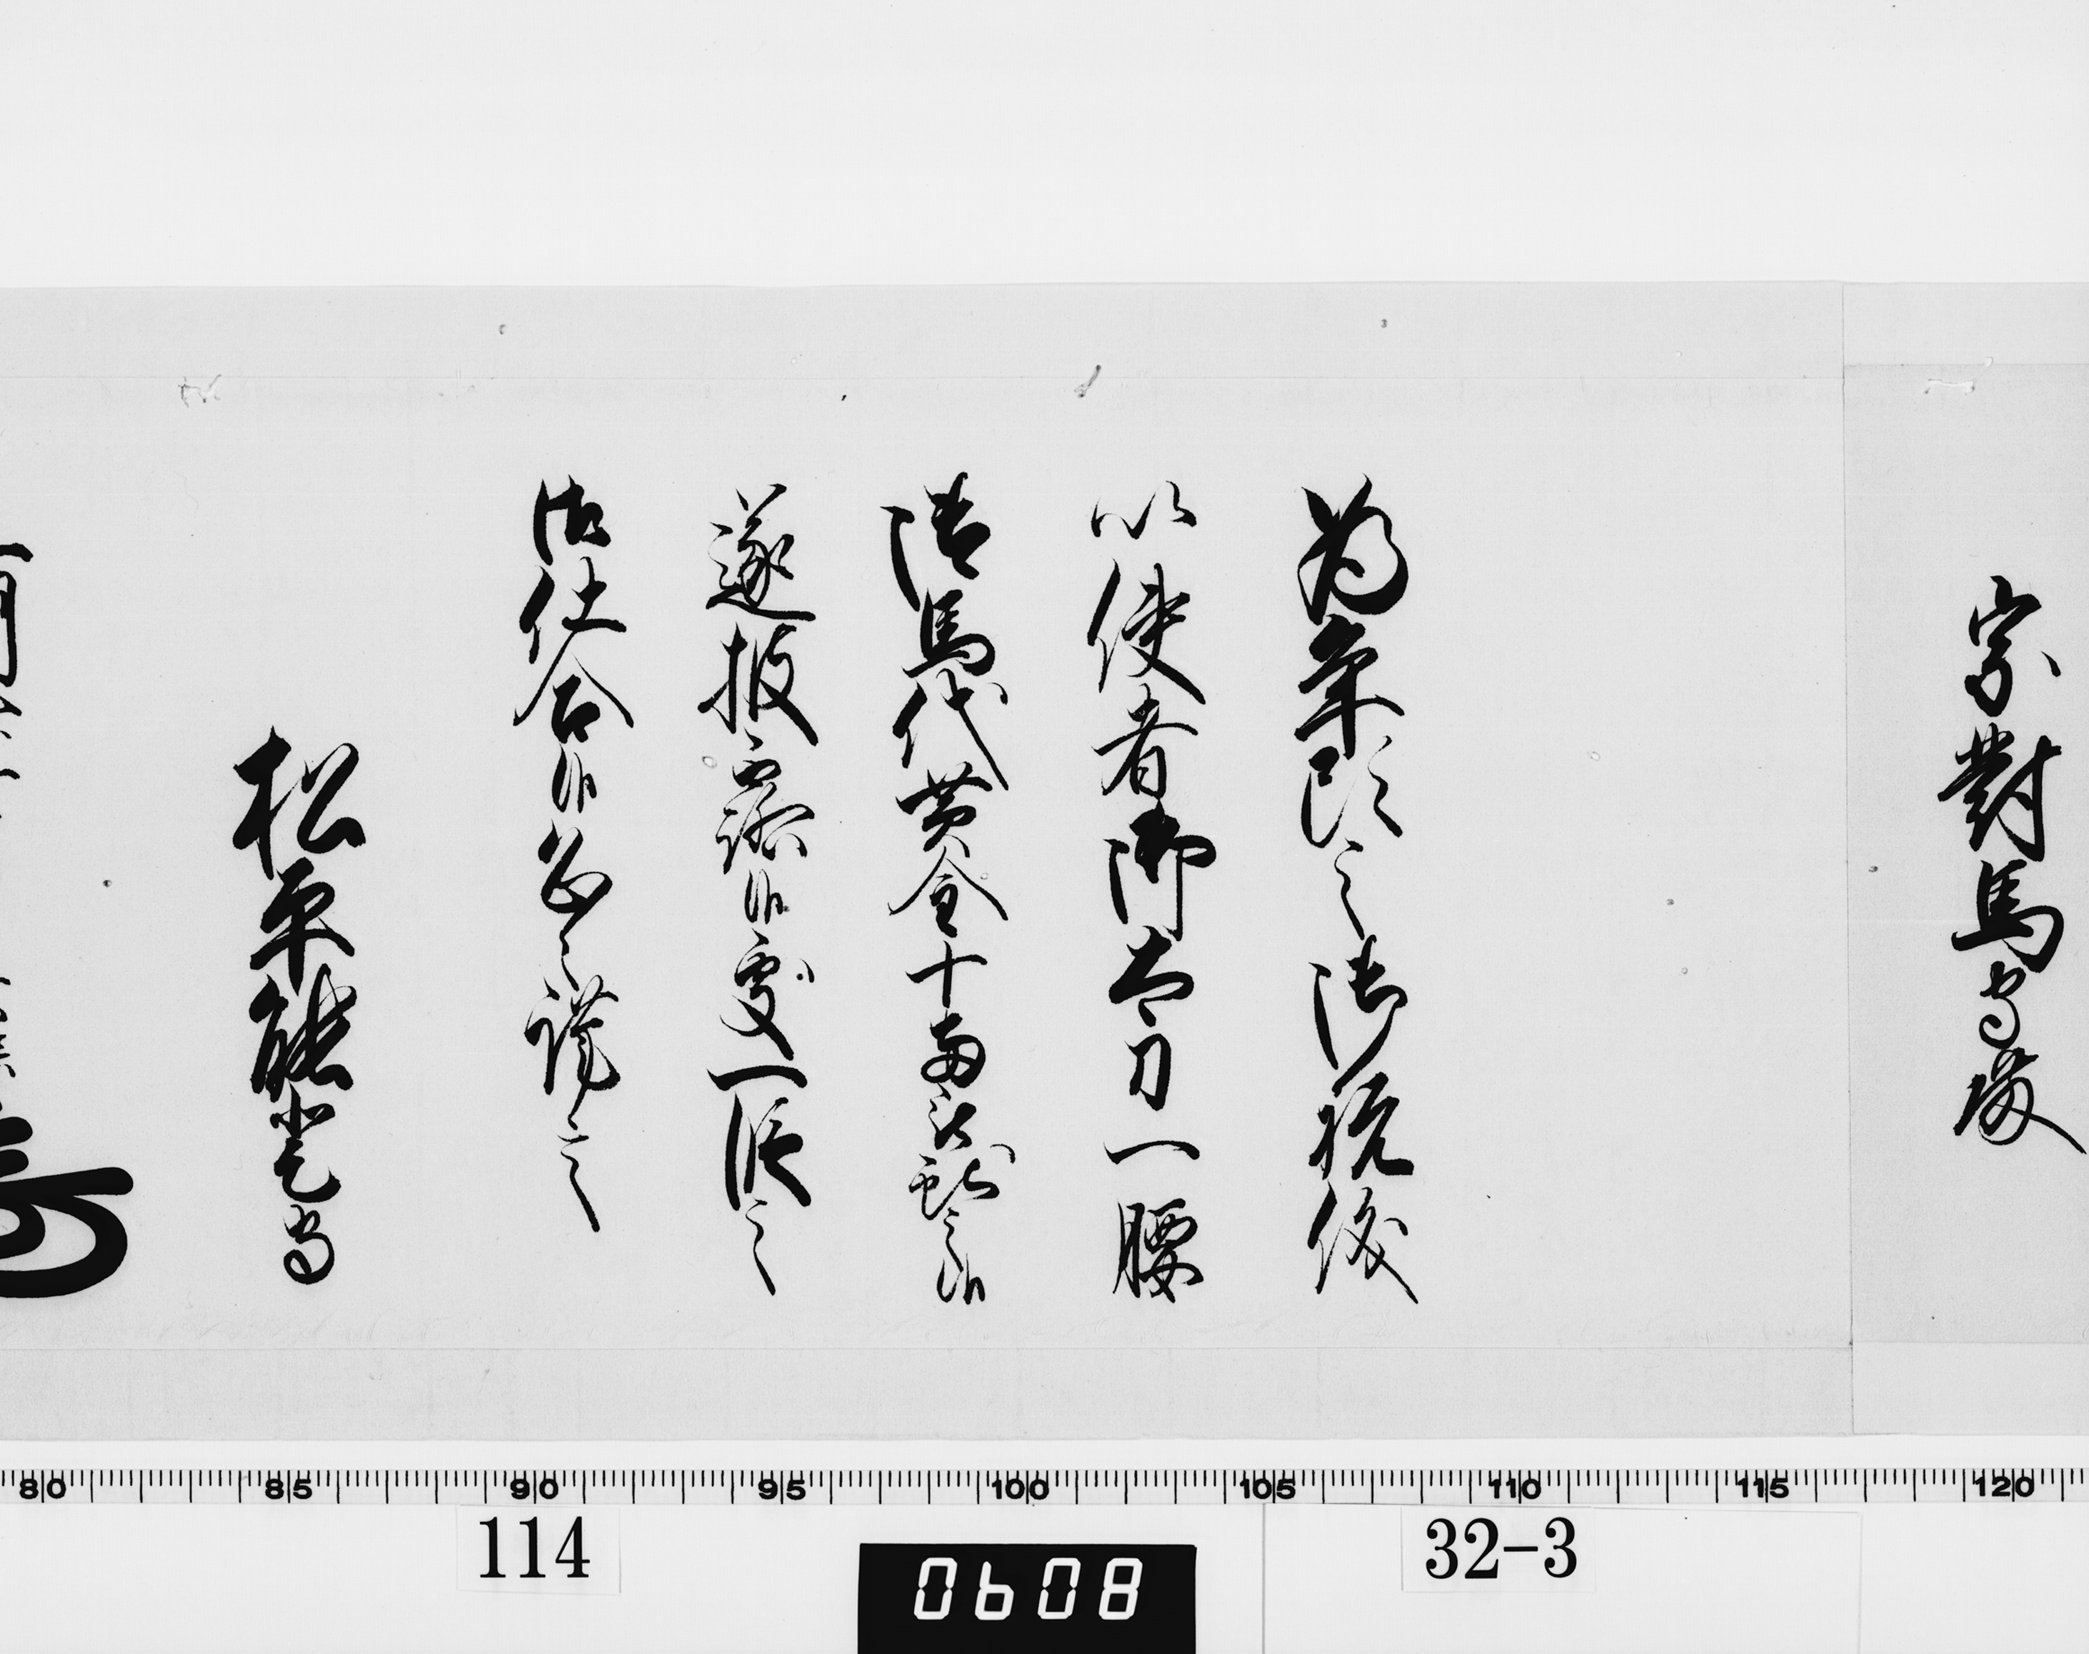 宗對馬守殿
為年頭之御祝儀
以使者御太刀一腰
御馬代黄金十両被献之候
遂披露候處一段之
御仕合候恐々謹言
松平能登守
80 85 90 95 100 105 110 115 120
114
0608
32-3